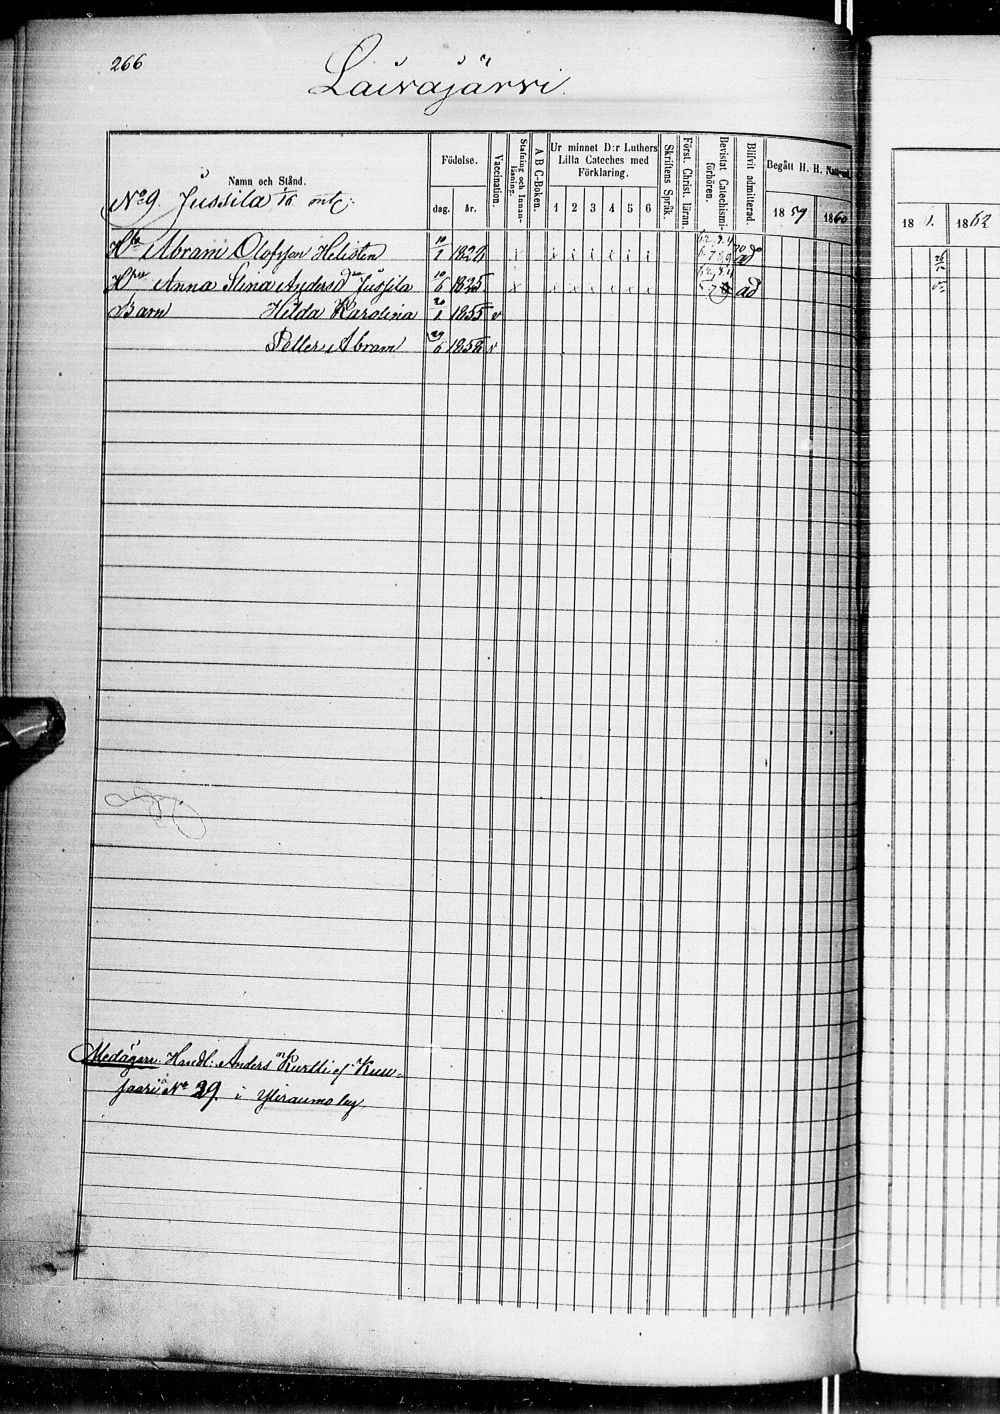 266
Laivajärvi.
Namn och Stånd.
Födelse.
dag.
år.
Vaccination.
Stafning och Innan-läsning.
A B C-Boken.
Ur minnet D:r Luthers Lilla Cateches med Förklaring.
1 2 3 4 5 6
Skriftens Språk.
Först. Christ. läran.
Bevistat Catechismi-förhören.
Blifvit admitterad.
Begått H. H. Nattvard
1859 1860
18 1. 1862
No 9 Jussila 1/16 mtl:
Abram Olofsson Helisten 10/1 1829 ad
Anna Stina Andersdr Jussila 10/6 1825 ad
Barn Hilda Karolina 20/1 1855 v
Petter Abram 29/6 1858 v
Medägare: Handl: Anders
No 29. i Yliraumo by